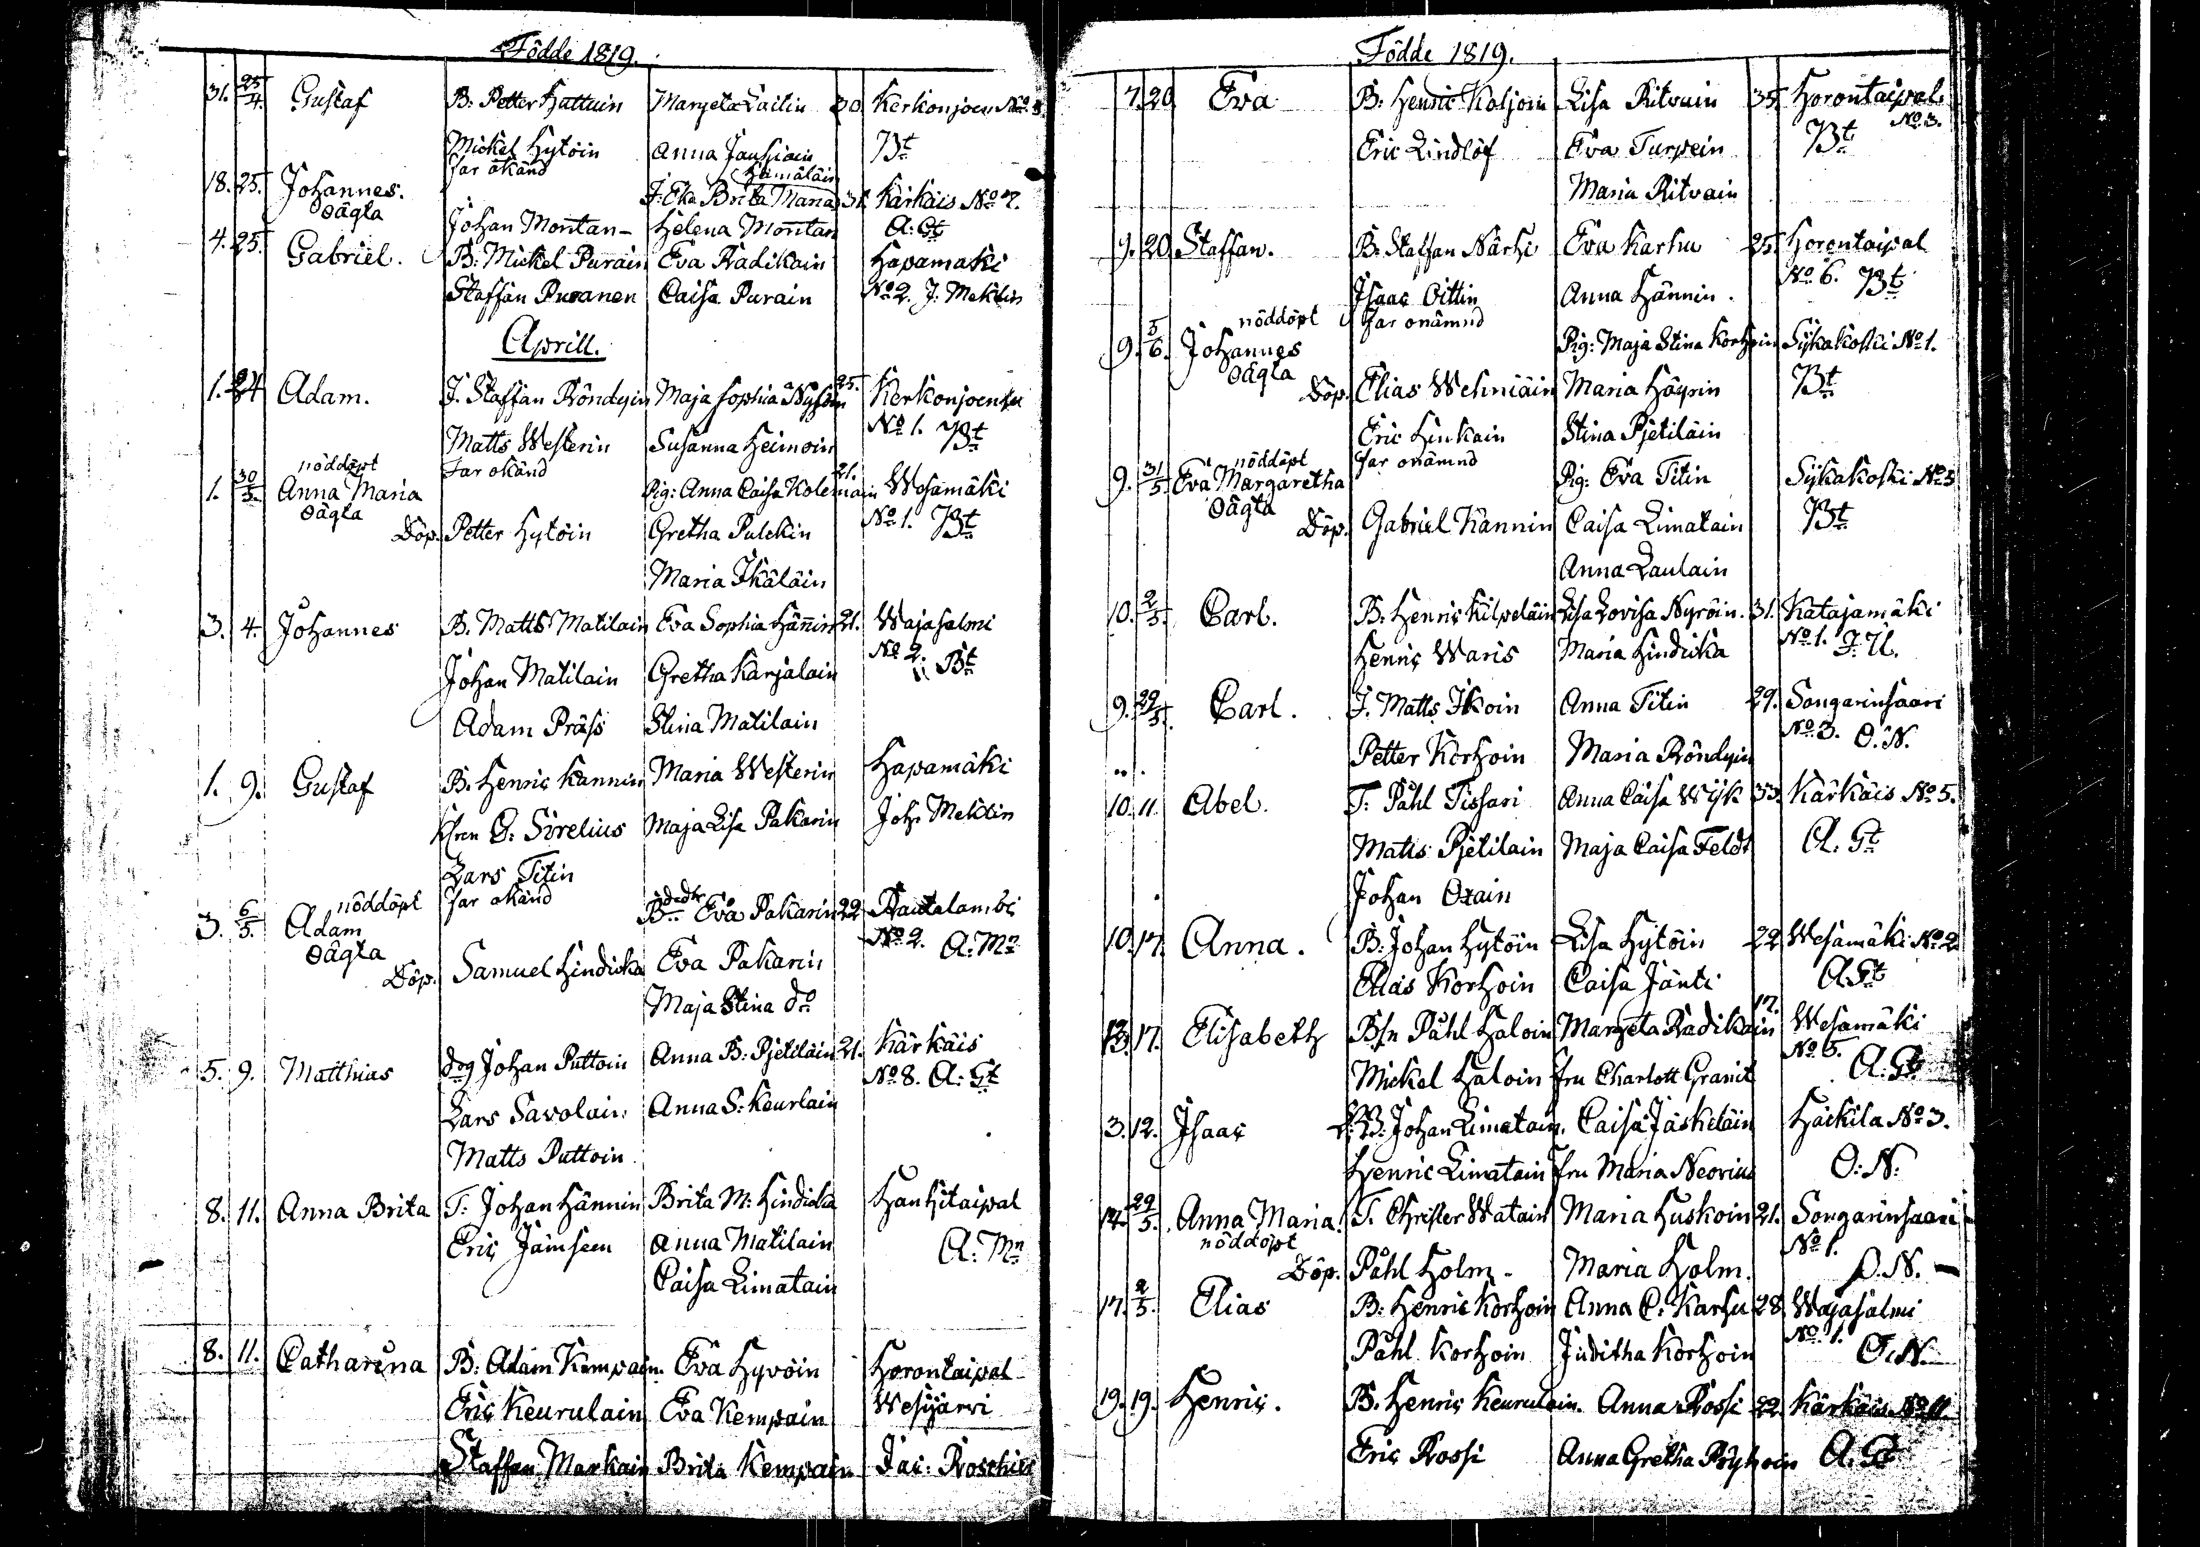 Födde 1819.
31. 25/4. Gustaf B: Petter Hattuin Margeta Laitin 30 Kerkonjoen No 3.
Mickel Hytöin Anna Jauhiain Bt
far okänd Hämäläin
18. 25. Johannes. J: Eka Brita Maria 31. Kärkäis No 7.
oägta
Johan Montan- Helena Montan A: Gt
4. 25. Gabriel. B: Mickel Purain Eva Radikain Hapamäki
Staffan Puranen Caisa Purain No 2. J. Meklin
Aprill.
1. 24 Adam. J. Staffan Röndyin Maja Sophia Nysöin 25. Kerkonjoensu
Matts Westerin Susanna Heimoin No 1. Bt
nöddöpt far okänd
1. 30/3. Anna Maria Pig: Anna Caisa Kolemain 21. Wesamäki
oägta
Döp. Petter Hytöin Gretha Pulckin No 1. Bt
Maria Ikäläin
3. 4. Johannes B. Matts Matilain Eva Sophia Hännin 21. Wajasalmi
No 2. Bt
Johan Matilain Gretha Karjalain
Adam Präss Stina Matilain
1. 9. Gustaf B. Henric Kannin Maria Westerin Hapamäki
G: Sirelius Maja Lisa Pakarin Joh. Meklin
Lars Titin
nöddöpt far okänd
3. 6/5. Adam Eva Pakarin 22 Rautalambi
oägta No 2. A: Mn
Döp. Samuel Hindicka Eva Pakarin
Maja Stina do
5. 9. Matthias drg Johan Puttoin Anna B: Pjetiläin 21. Kärkäis
No 8. A: Gt
Lars Savolain Anna S: Keurlain
Matts Puttoin
8. 11. Anna Brita T: Johan Hännin Brita M: Hindicka Hanhitaipal
Eric Jämseen Anna Matilain A: Mn
Caisa Limatain
8. 11. Catharina B: Adam Kempain Eva Hyvöin Horontaipal
Eric Keurulain Eva Kempain Wesijärvi
Staffan Markain Brita Kempain Jac: Roschier
Födde 1819.
7. 20 Eva B: Henric Koljoin Lisa Ritvain 35 Horontaipal
No 3.
Eric Lindlöf Eva Turpein Bt
Maria Ritvain
9. 20 Staffan. B: Staffan Närhi Eva Karhu 25. Horontaipal
Isaac Oittin Anna Hännin. No 6. Bt
nöddöpt far onämnd
9. 5/6. Johannes Pig: Maja Stina Korhoin Sykäkoski No 1.
oägta
Döp. Elias Wehniäin Maria Häyrin Bt
Eric Hinkain Stina Pjetiläin
nöddöpt far onämnd
9. 31/5. Eva Margaretha Pig: Eva Titin Sykäkoski No 5
oägta
Döp. Gabriel Kannin Caisa Limatain Bt
Anna Laulain
10. 2/5. Carl. B: Henric Kilpeläin Lisa Lovisa Nyröin. 31. Katajamäki
Henric Waris Maria Hindicka No 1. J: U.
9. 29/5. Carl. J. Matts Ikoin Anna Titin 29. Songarinsaari
Petter Korhoin Maria Röndyin No 3. O: N.
10. 11 Abel. T: Påhl Tissari Anna Caisa Wijk 33. Kärkäis No 5.
Matts Pjetilain Maja Caisa Feldt A: Gt
Johan Oxain
10. 17. Anna. B: Johan Hytöin Lisa Hytöin 22 Wesamäki No 2
Elias Korhoin Caisa Jänti A Gt
13. 17. Elisabeth Bsn Påhl Haloin Margeta Radikain 17. Wesamäki
Mickel Haloin fru Charlott Granit No 5. A: Gt
3. 12. Isaac Johan Limatain. Caisa Jäskeläin Häikilä No 3.
Henric Limatain fru Maria Neovius O: N:
14. 29/5. Anna Maria. T. Christer Watain Maria Huskoin 21. Songarinsaari
nöddöpt No 1.
Döp. Påhl Holm- Maria Holm. O. N. -
17. 2/5. Elias B: Henric Korhoin Anna C: Karhu 28 Wajasalmi
Påhl Korhoin Juditha Korhoin No 1. O: N.
19. 19. Henric. B. Henric Keurulain. Anna Rossi 22. Kärkäis No 11
Eric Rossi Anna Gretha Ryhoin A. Gt